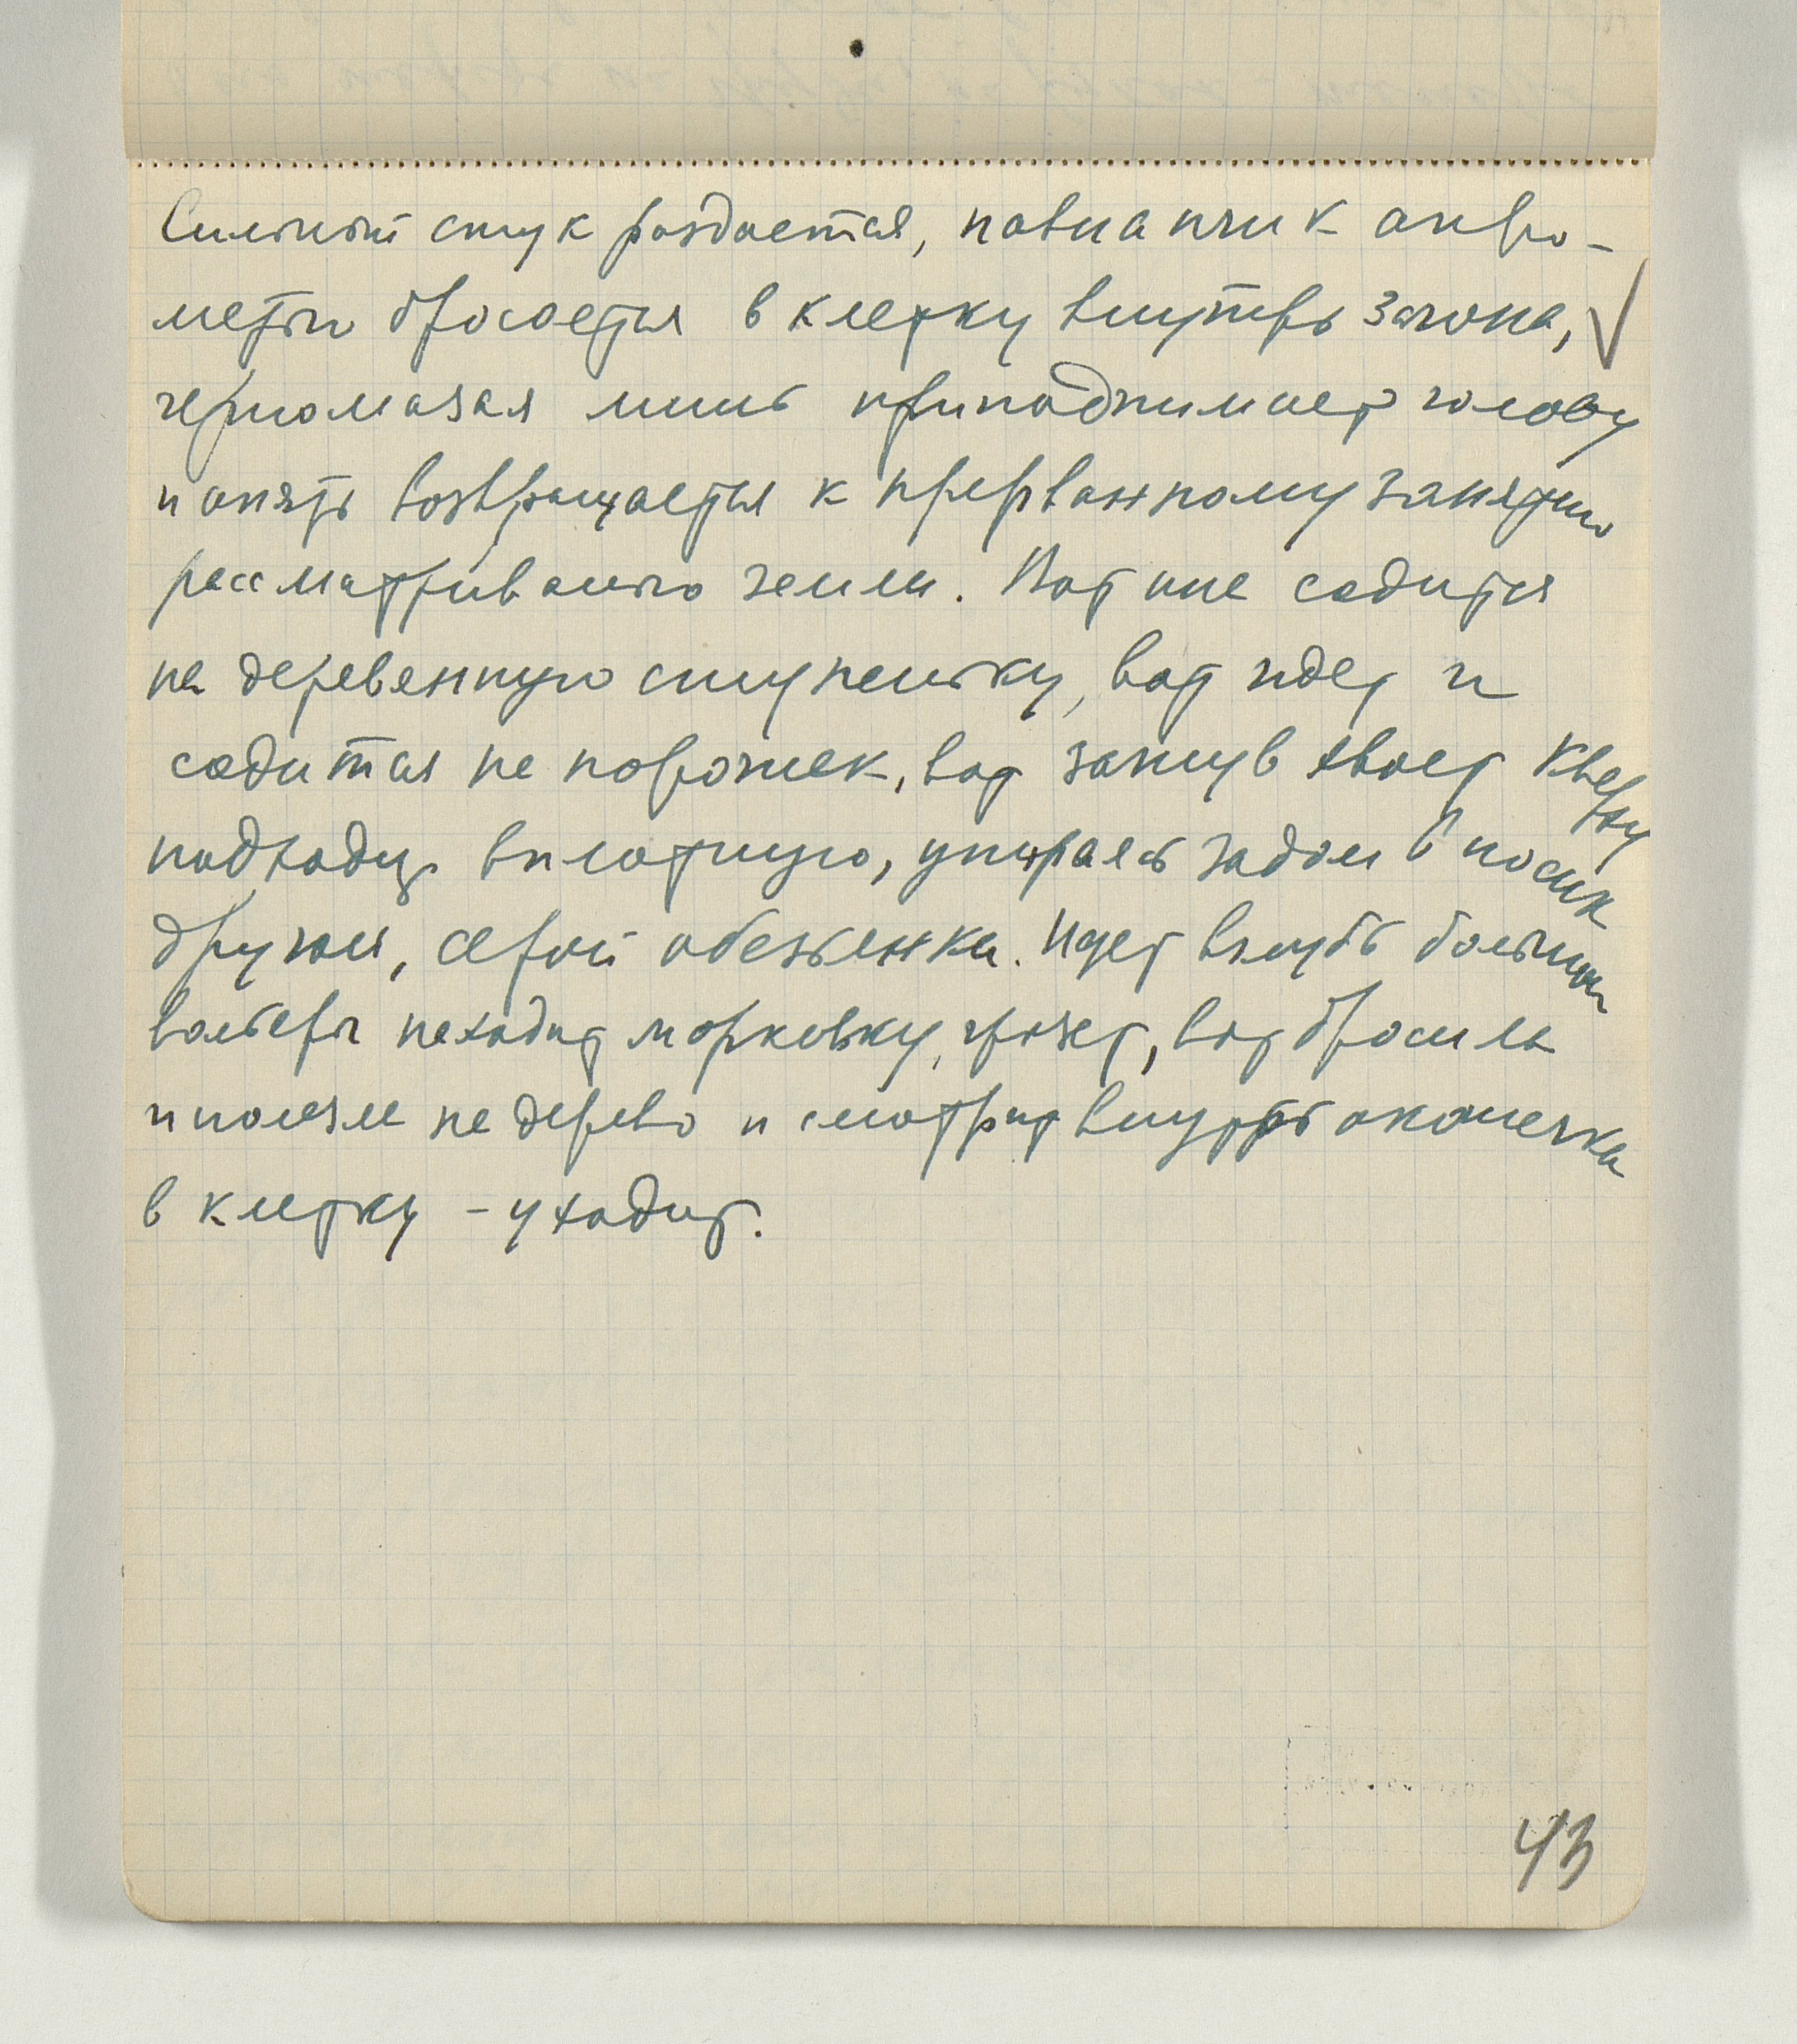 Сильный стук раздается, павианчик опро-
метью бросается в клетку внутрь загона,
черномазая лишь приподнимает голову
и опять возвращается к прерванному занятию
рассматриванью земли. Вот она садится
на деревянную ступеньку, вот идет и
садится на порожек, вот загнув хвост кверху
подходит вплотную, упираясь задом в носик
другой, серой обезьянки. Идет вглубь большой
вольеры находит морковку, грызет, вот бросила
и полезла на дерево и смотрит внутрь окошечка
в клетку – уходит.
43